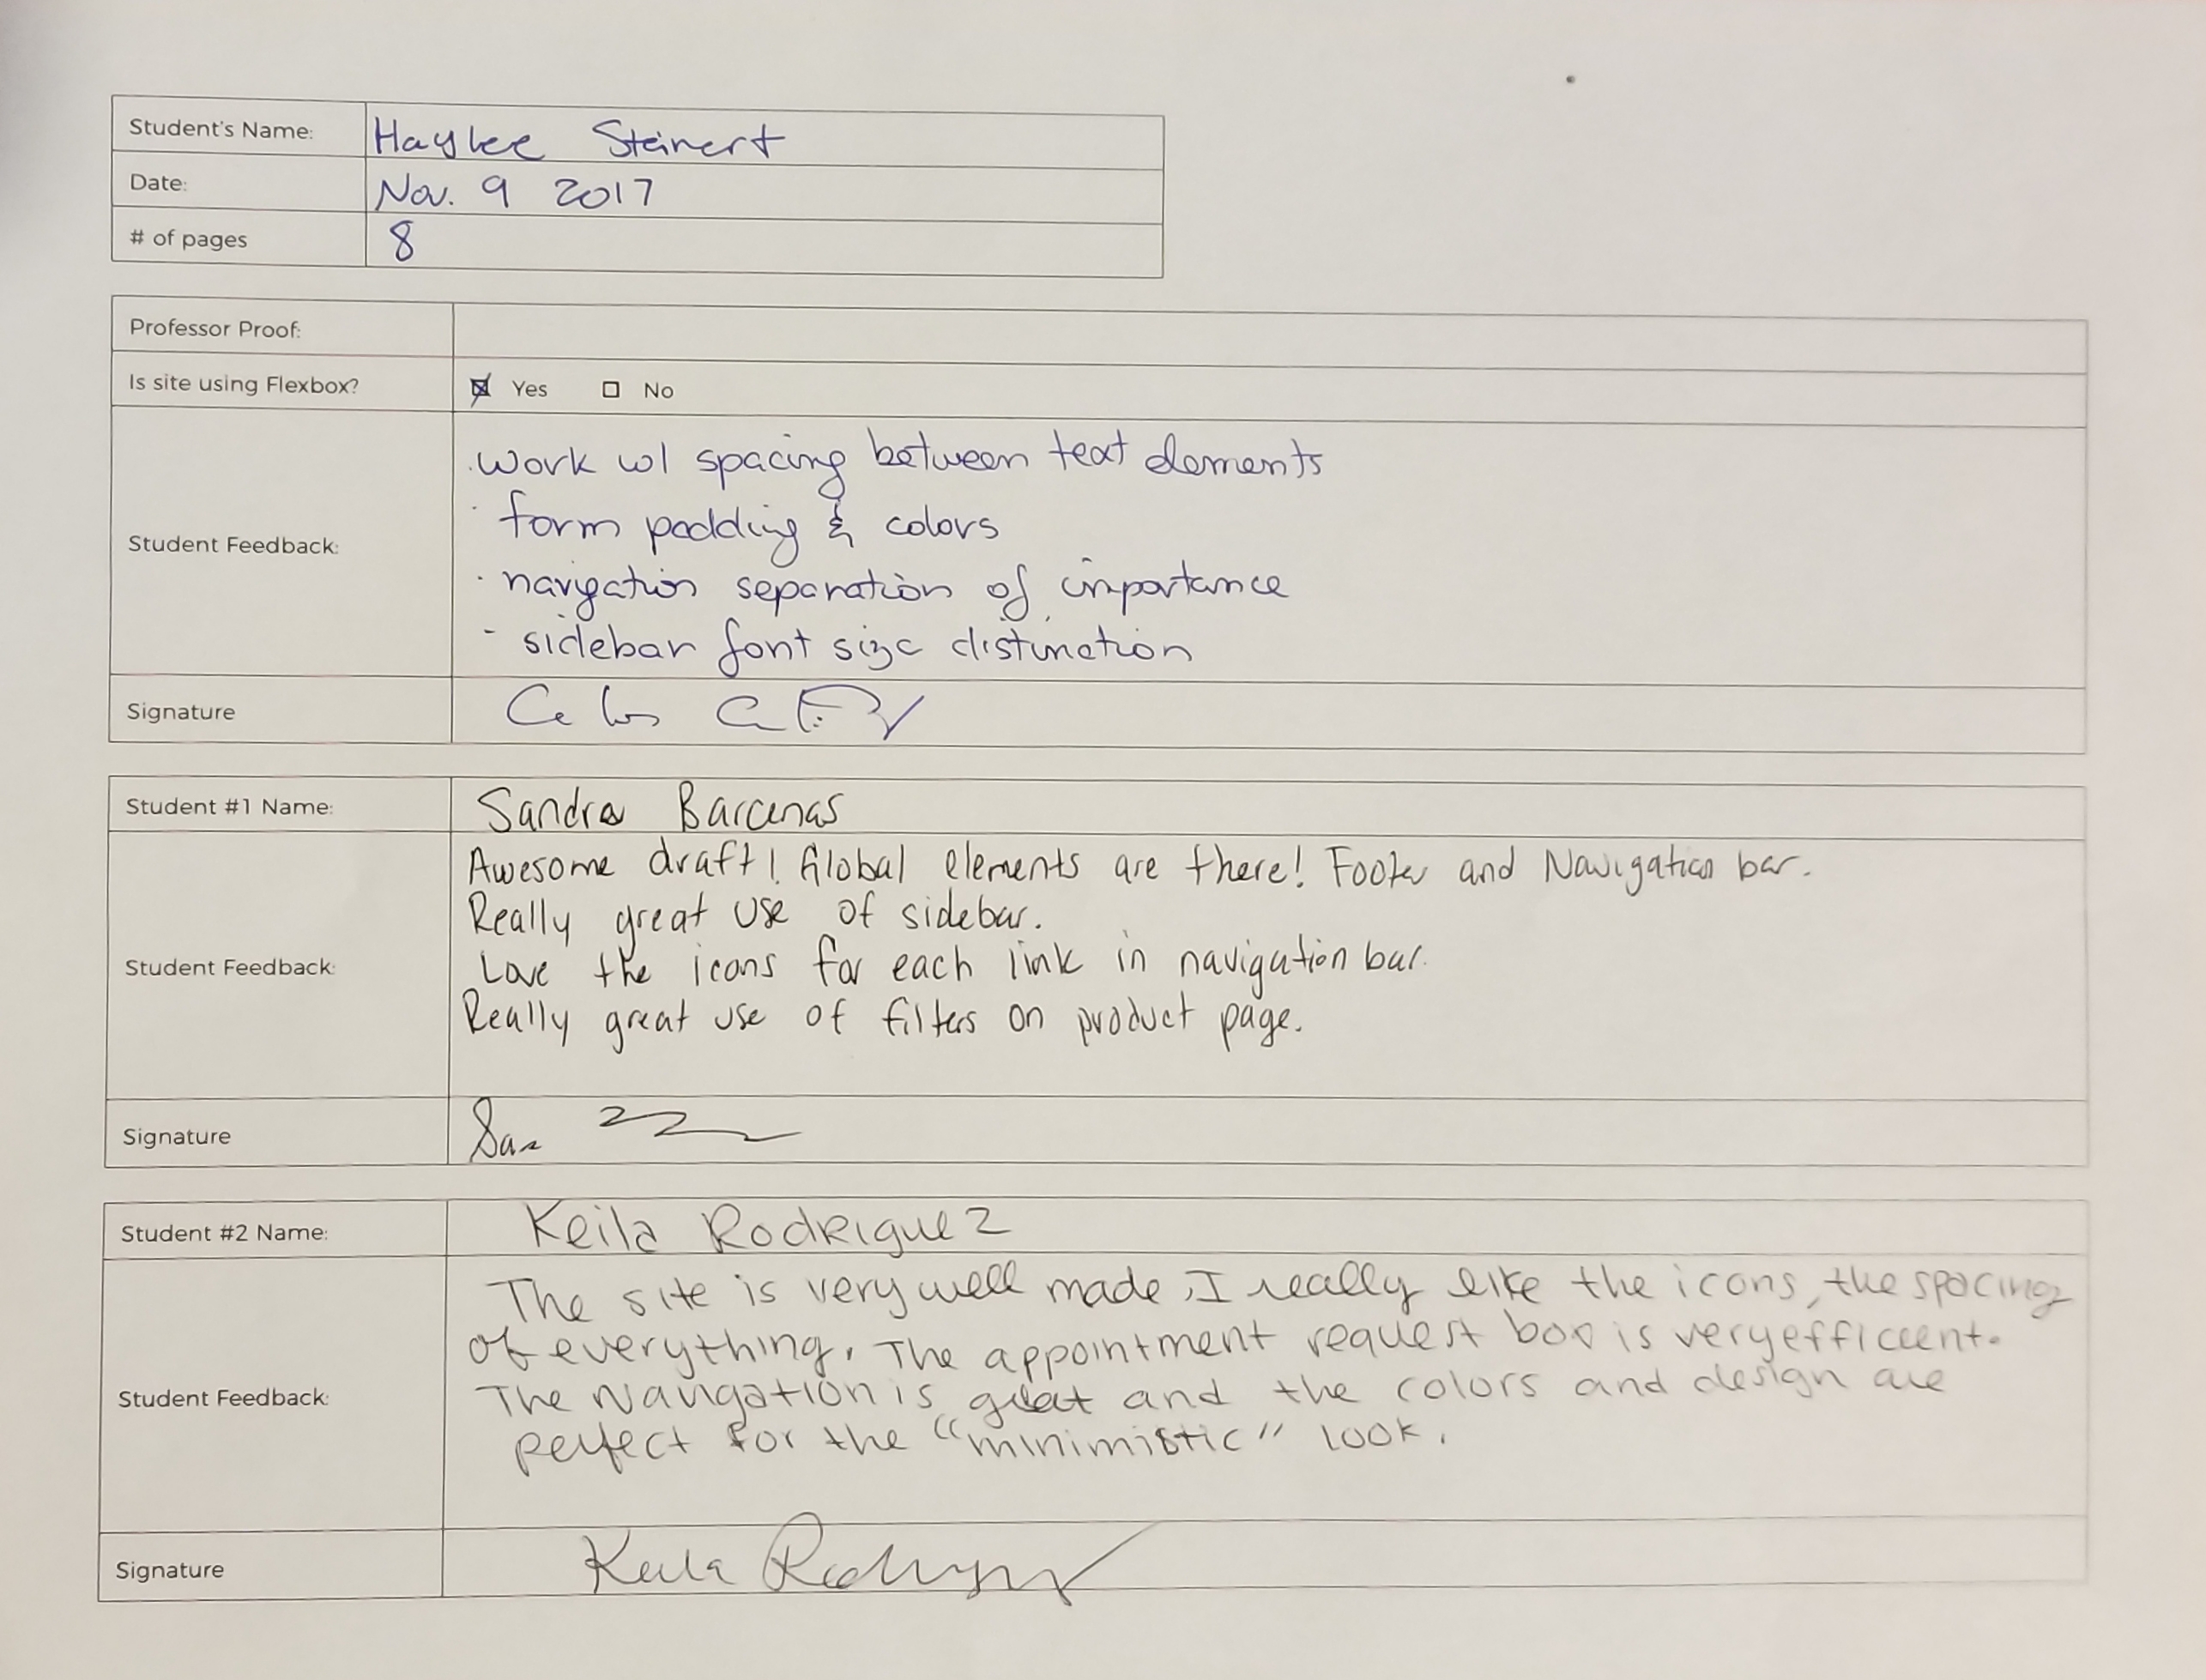 Student's Name: Haylee Steinert
Date: Nov. 9 2017
# of pages 8
Professor Proof:
Is site using Flexbox? Yes No
· work w/ spacing between text elements
· form padding & colors
Student Feedback:
· navigation separation of importance
- sidebar font size distinction
Signature
Student #1 Name: Sandra Barcenas
Awesome draft! Global elements are there! Footer and Navigation bar.
Really great use of sidebar.
Student Feedback: Love the icons for each link in navigation bar.
Really great use of filters on product page.
Signature
Student #2 Name: Keila Rodriguez
The site is very well made, I really like the icons, the spacing
of everything. The appointment request box is very efficient.
Student Feedback: The Navigation is great and the colors and design are
perfect for the "minimistic" look.
Signature Keila